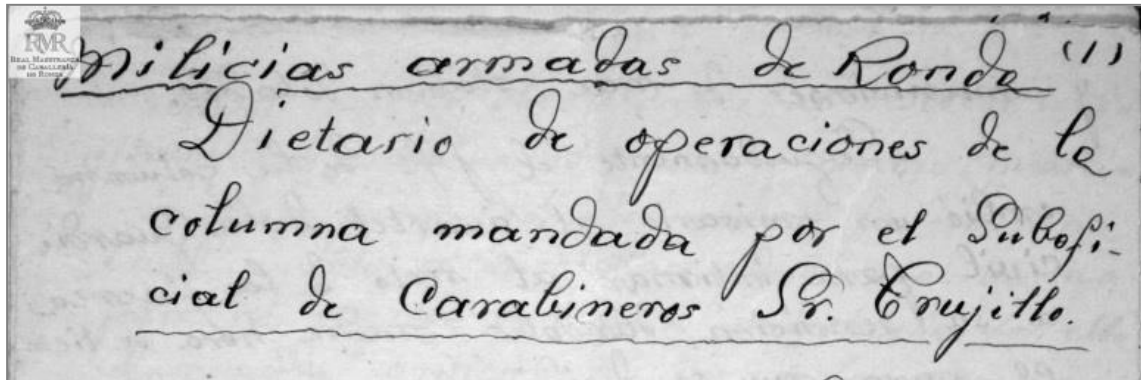 RMR
REAL MAESTRANZA
DE CABALLERÍA
DE RONDA
Milicias armadas de Ronda (1)
Dietario de operaciones de la
columna mandada por el Subofi-
cial de Carabineros Sr. Trujillo.